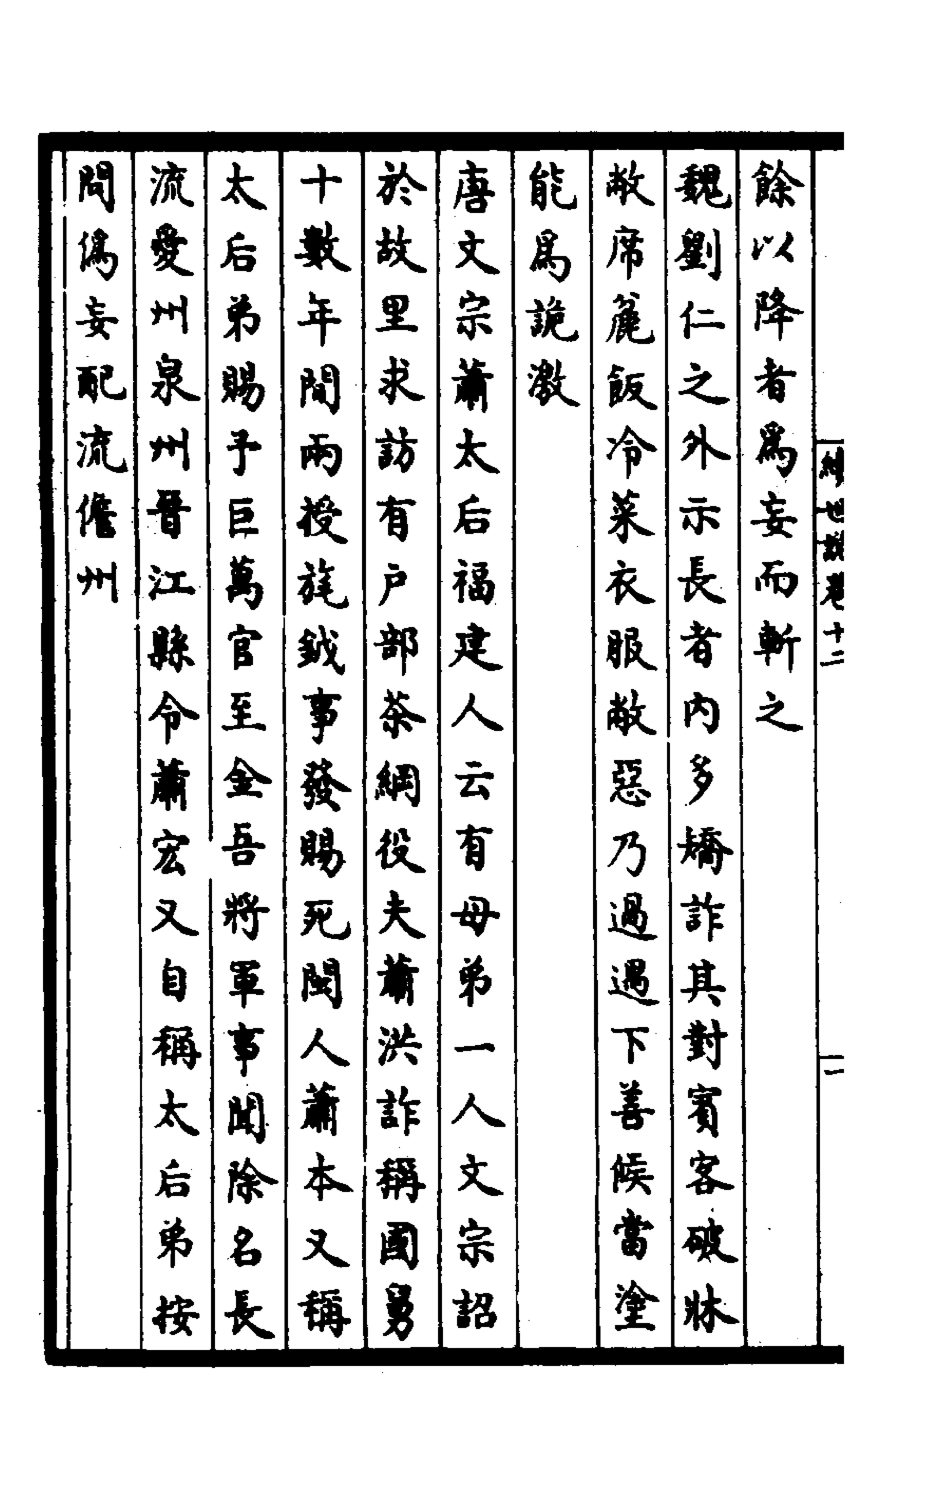 餘以降者爲妄而斬之
魏劉仁之外示長者內多矯詐其對賓客破牀
敝席麄飯冷菜衣服敝惡乃過逼下善候當塗
能爲詭激
唐文宗蕭太后福建人云有母弟一人文宗詔
於故里求訪有户部茶綱役夫蕭洪詐稱國舅
十數年間兩授旄鉞事發賜死閩人蕭本又稱
太后弟賜予巨萬官至金吾將軍事聞除名長
流愛州泉州晉江縣令蕭宏又自稱太后弟按
問僞妄配流儋州
續世說卷十二
二